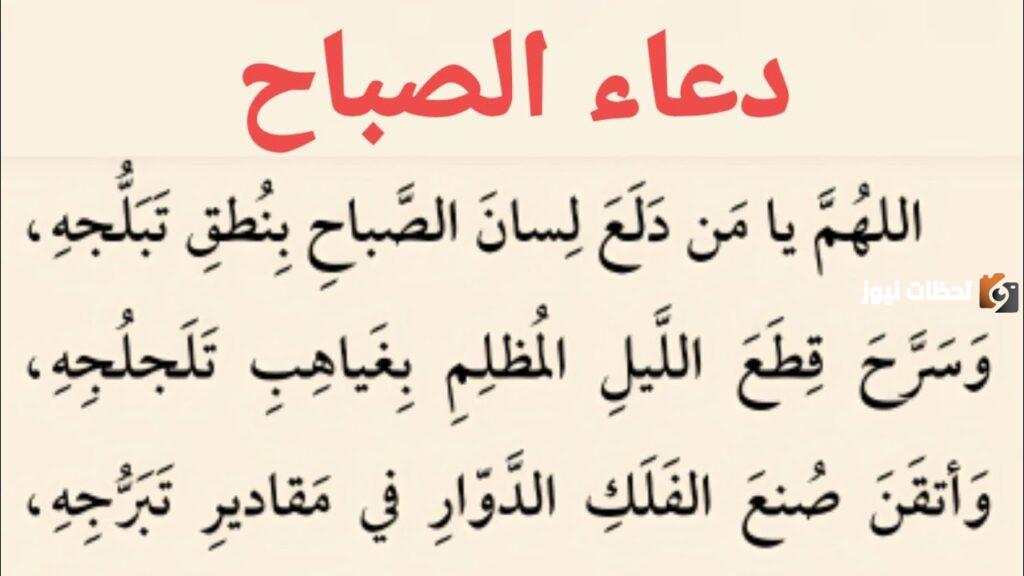 دعاء الصباح
اللهُمَّ يا مَن دَلَعَ لِسانَ الصَّباحِ بِنُطقِ تَبَلُّجهِ،
لحظات نيوز
وَسَرَّحَ قِطَعَ اللَّيلِ المُظلِمِ بِغَياهِبِ تَلَجلُجِهِ،
وَأتقَنَ صُنعَ الفَلَكِ الدَّوّارِ في مَقاديرِ تَبَرُّجِهِ،